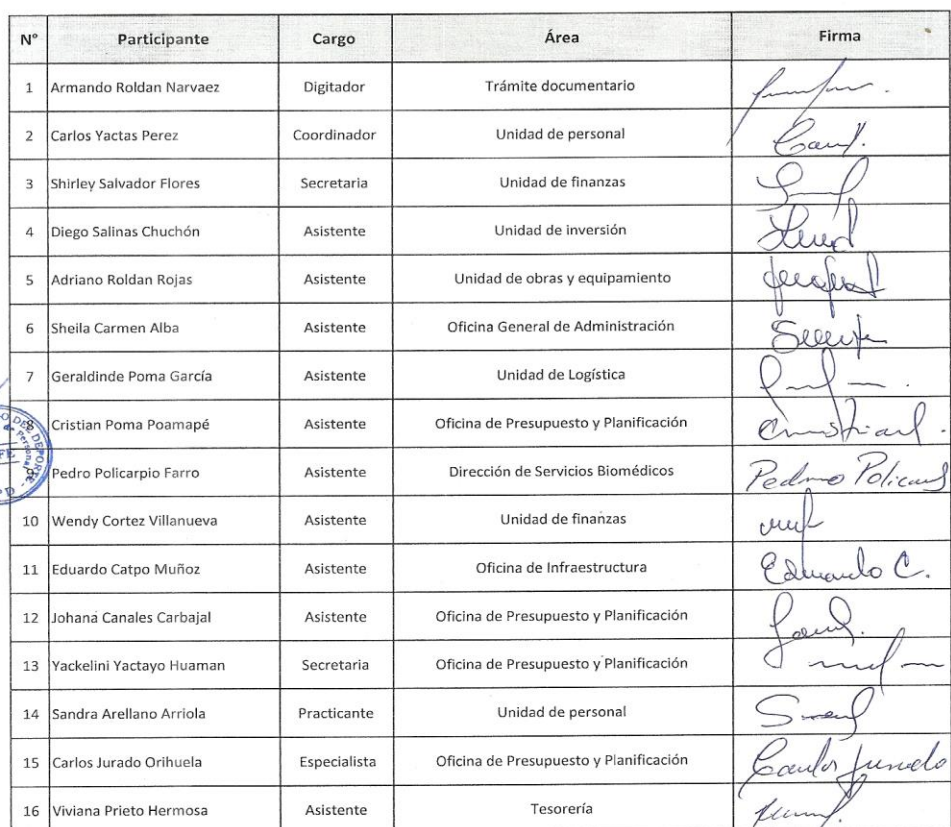 N° Participante Cargo Área Firma
1 Armando Roldan Narvaez Digitador Trámite documentario
2 Carlos Yactas Perez Coordinador Unidad de personal
3 Shirley Salvador Flores Secretaria Unidad de finanzas
4 Diego Salinas Chuchón Asistente Unidad de inversión
5 Adriano Roldan Rojas Asistente Unidad de obras y equipamiento
6 Sheila Carmen Alba Asistente Oficina General de Administración
7 Geraldinde Poma García Asistente Unidad de Logística
8 Cristian Poma Poamapé Asistente Oficina de Presupuesto y Planificación
9 Pedro Policarpio Farro Asistente Dirección de Servicios Biomédicos Pedro
10 Wendy Cortez Villanueva Asistente Unidad de finanzas
11 Eduardo Catpo Muñoz Asistente Oficina de Infraestructura Eduardo C.
12 Johana Canales Carbajal Asistente Oficina de Presupuesto y Planificación
13 Yackelini Yactayo Huaman Secretaria Oficina de Presupuesto y Planificación
14 Sandra Arellano Arriola Practicante Unidad de personal
15 Carlos Jurado Orihuela Especialista Oficina de Presupuesto y Planificación Carlos Jurado
16 Viviana Prieto Hermosa Asistente Tesorería